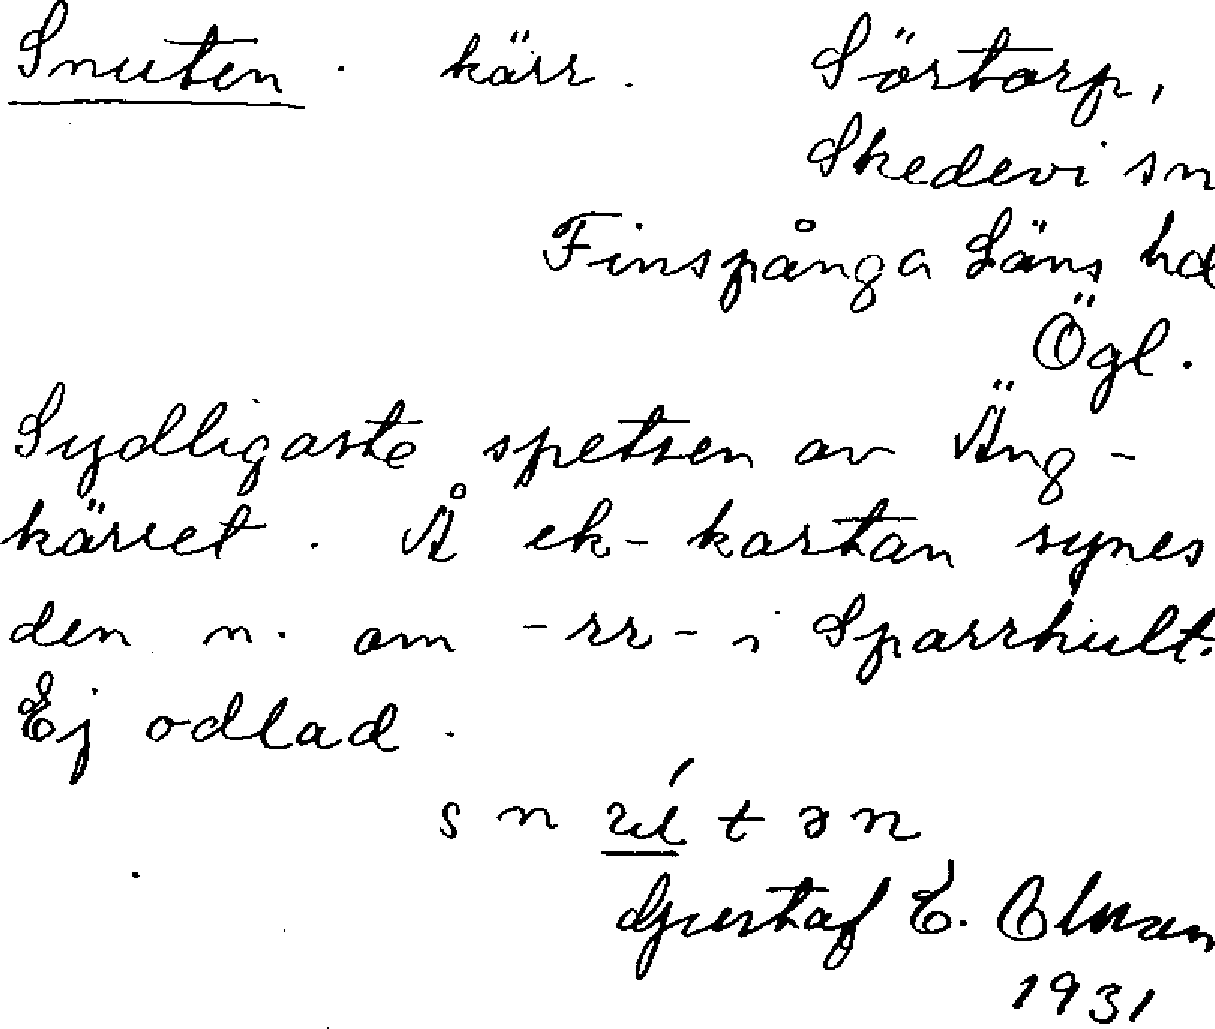 Snuten. kärr. Sörtorp,
Skedevi sn
Finspånga Läns hd
Ögl.
Sydligaste spetsen av Äng-
kärret. Å ek-kartan synes
den n. om -rr- i Sparrhult.
Ej odlad.
s n ú t ə n
Gustaf E.
1931